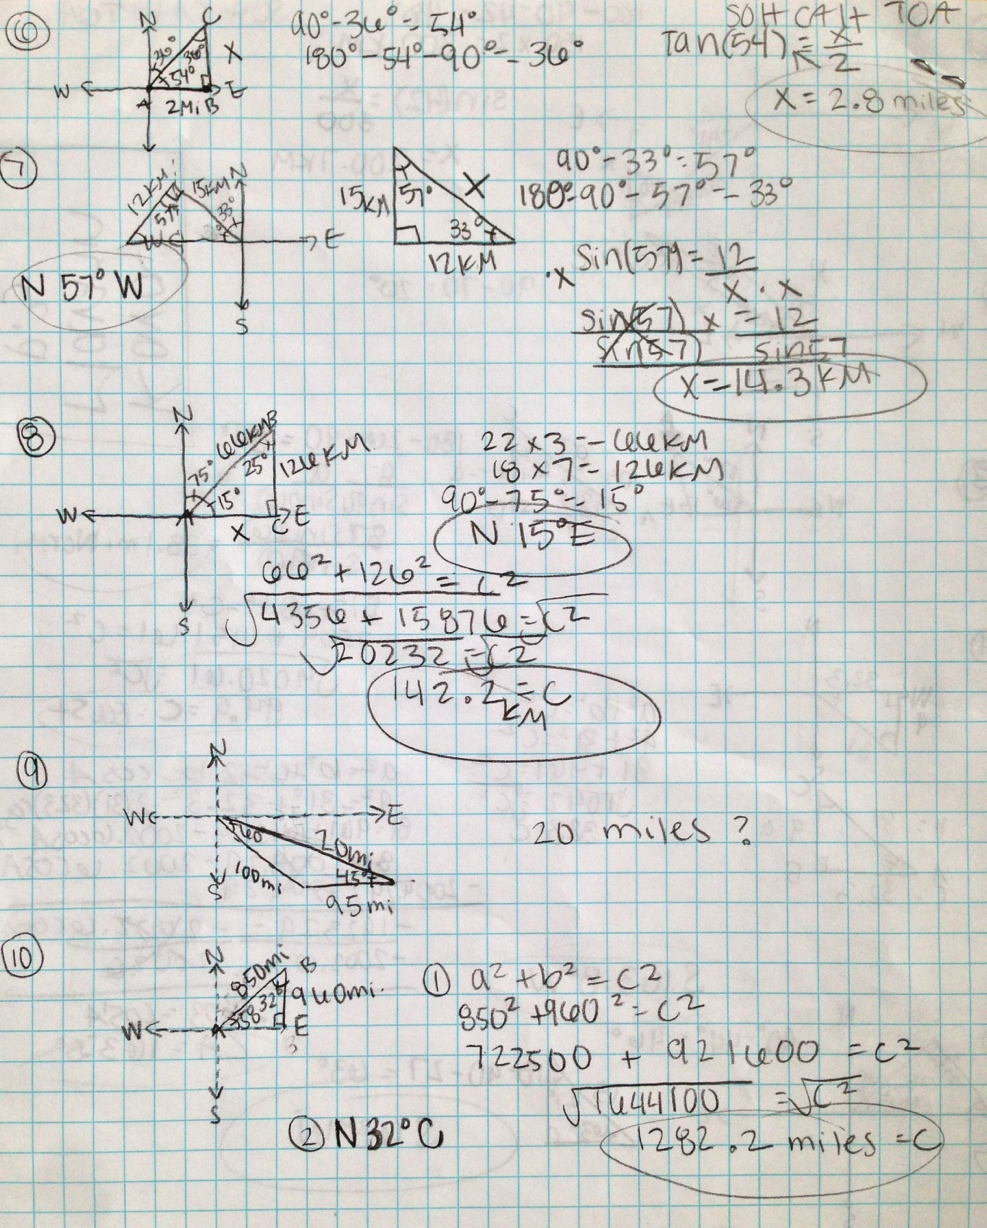 6
N
C
36°
36°
X
54°
W
E
A
2Mi B
90°-36° = 54°
180°-54°-90° = 36°
SOH CAH TOA
Tan(54) = x/2
x = 2.8 miles
7
12KM
15KM N
57°
33°
W
E
S
N 57° W
15KM
57°
X
33°
12KM
90°-33° = 57°
180°-90°-57° = 33°
·x sin(57) = 12/x · x
sin(57) x = 12
sin(57) sin57
x = 14.3 KM
8
N
66KM B
75°
25°
126KM
15°
W
X
C E
S
22 x 3 = 66KM
18 x 7 = 126KM
90°-75° = 15°
N 15° E
66² + 126² = c²
√4356 + 15876 = √c²
√20232 = √c2
142.2 = C
KM
9
N
W
E
560
20mi
100mi
45°
S
95mi
20 miles ?
10
N
850mi
B
960mi.
32°
358
W
E
S
① a² + b² = c²
850² + 960² = c²
722500 + 921600 = c²
√1644100 = √c²
1282.2 miles = C
② N 32° C